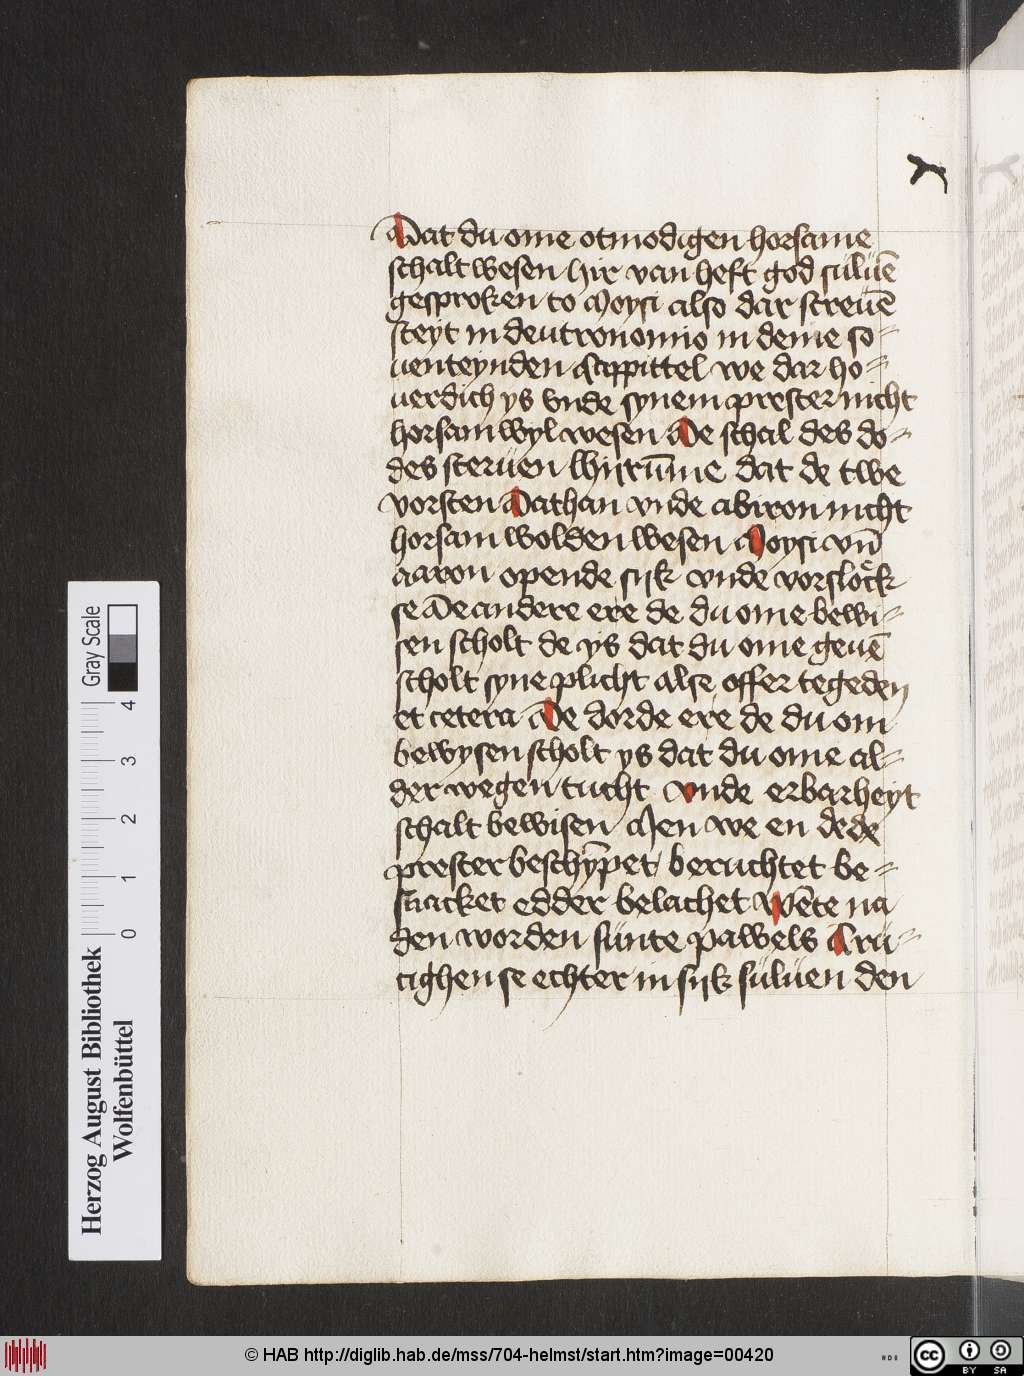 Dat du ome otmodigen horsame
schalt wesen hir van heft god suluē
gesproken to Moysi also dar screuē
steyt in deutronomio in deme so-
uenteynden Cappittel we dar ho-
uerdich ys vnde synem prester nicht
horsam wyl wesen De schal des do-
des steruen wy dat de twe
vorsten Dathan vnde abiron nicht
horsam wolden wesen Moysi vn̄
aaron opende sijk vnde vorslock
se De andere ere de du ome bewi-
sen scholt de ys dat du ome geuē
scholt syne plicht alse offer tegeden
et cetera De dorde ere de du om
bewysen scholt ys dat du ome al-
der wegen tucht vnde erbarheyt
schalt bewisen Men we en dede
prester beschȳpet beruchtet be-
snacket edder belachet Wēte na
den worden sunte pawels Cru-
cighen se echter in sijk suluen den
Herzog August Bibliothek
Wolfenbüttel
0 1 2 3 4
Gray Scale
© HAB http://diglib.hab.de/mss/704-helmst/start.htm?image=00420
cc BY SA